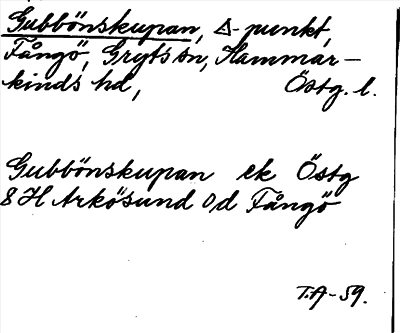 Gubbönskupan, △-punkt,
Fångö, Gryts sn, Hammar-
kinds hd, Östg. l.
Gubbönskupan ek Östg
8H Arkösund 0d Fångö
T.A-59.